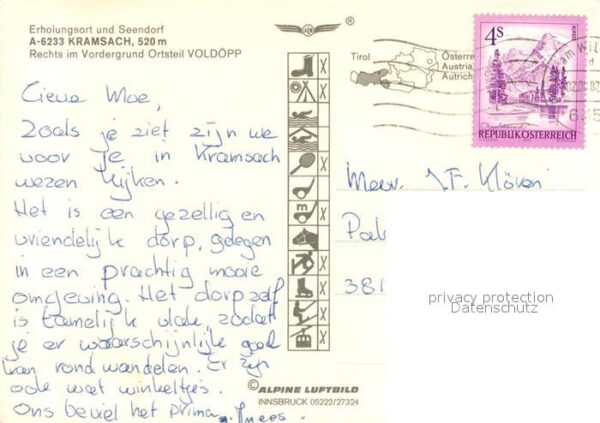 Erholungsort und Seendorf
A-6233 KRAMSACH, 520 m
Rechts im Vordergrund Ortsteil VOLDÖPP
®
Tirol
Österreich
Austria
Autriche
4S
REPUBLIK ÖSTERREICH
Lieve Moe,
Zoals je ziet zijn we
voor je in Kramsach
wezen kijken.
Het is een gezellig en
vriendelijk dorp, gelegen
in een prachtig mooie
omgeving. Het dorp zelf
is tamelijk vlak, zodat
je er waarschijnlijk goed
kan rond wandelen. Er zijn
ook wat winkeltjes.
Ons beviel het prima
Mevr. J.F.
381
privacy protection
Datenschutz
© ALPINE LUFTBILD
INNSBRUCK 05222/27324